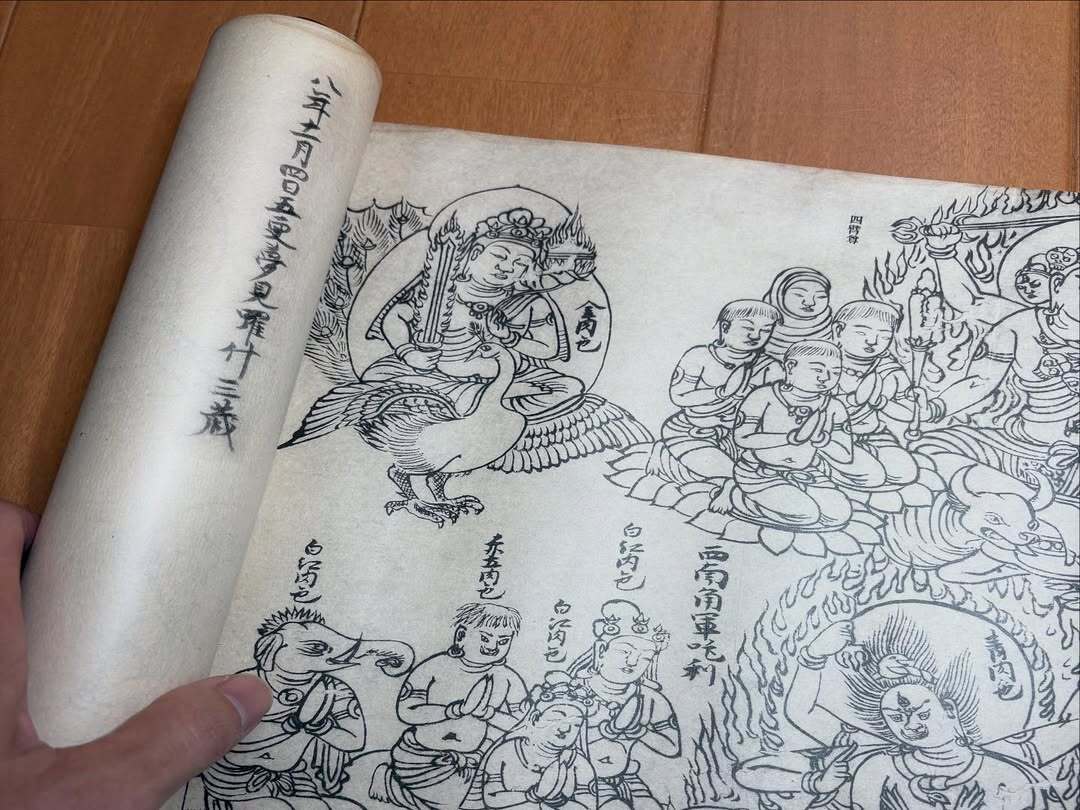 四臂尊
八年十二月四日五更夢見羅什三蔵
西南角軍吒利
青肉色
白紅肉色
白紅肉色
白紅肉色